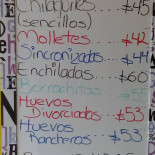 Chilaquiles....$45
(sencillos)
Molletes......$42
Sincronizadas..$44
Enchiladas....$60
Borrachitas...$55
Huevos
Divorciados...$53
Huevos
Rancheros...$53